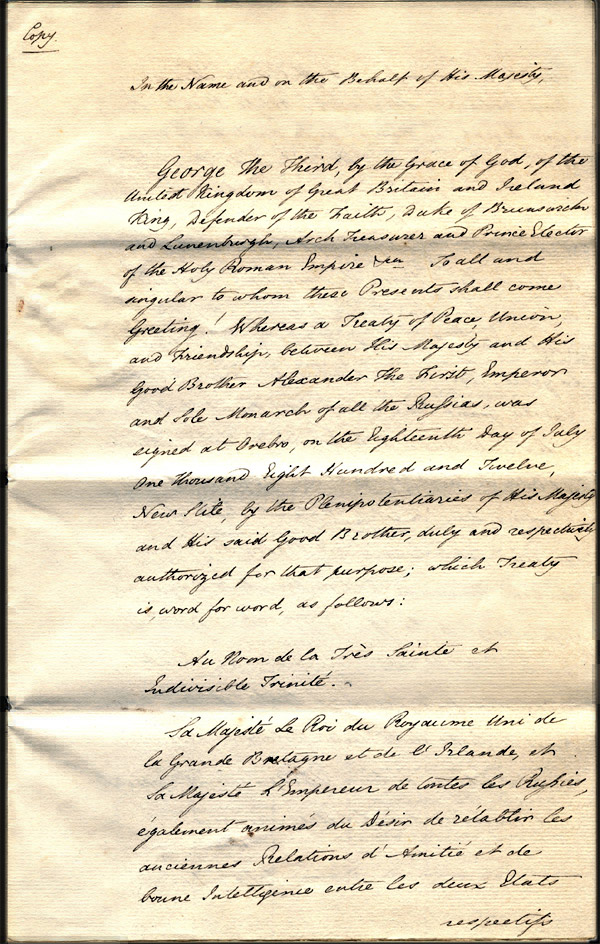 Copy
In the Name and on the Behalf of His Majesty,
George the Third, by the Grace of God, of the
United Kingdom of Great Britain and Ireland
King, Defender of the Faith, Duke of Brunswick
and Lunenburgh, Arch Treasurer and Prince Elector
of the Holy Roman Empire &ca To all and
singular to whom these Presents shall come
Greeting! Whereas a Treaty of Peace, Union,
and Friendship, between His Majesty and His
Good Brother Alexander The First, Emperor
and Sole Monarch of all the Russias, was
signed at Orebro, on the Eighteenth Day of July
One thousand Eight Hundred and Twelve,
New Stile, by the Plenipotentiaries of His Majesty
and His said Good Brother, duly and respectively
authorized for that purpose; which Treaty
is, word for word, as follows:
Au Nom de la Très Sainte et
Indivisible Trinité.
Sa Majesté Le Roi du Royaume Uni de
la Grande Bretagne et de l'Irlande, et
Sa Majesté L'Empereur de toutes les Russies,
également animés du Désir de rétablir les
anciennes Relations d'Amitié et de
bonne Intelligence entre les deux Etats
respectifs